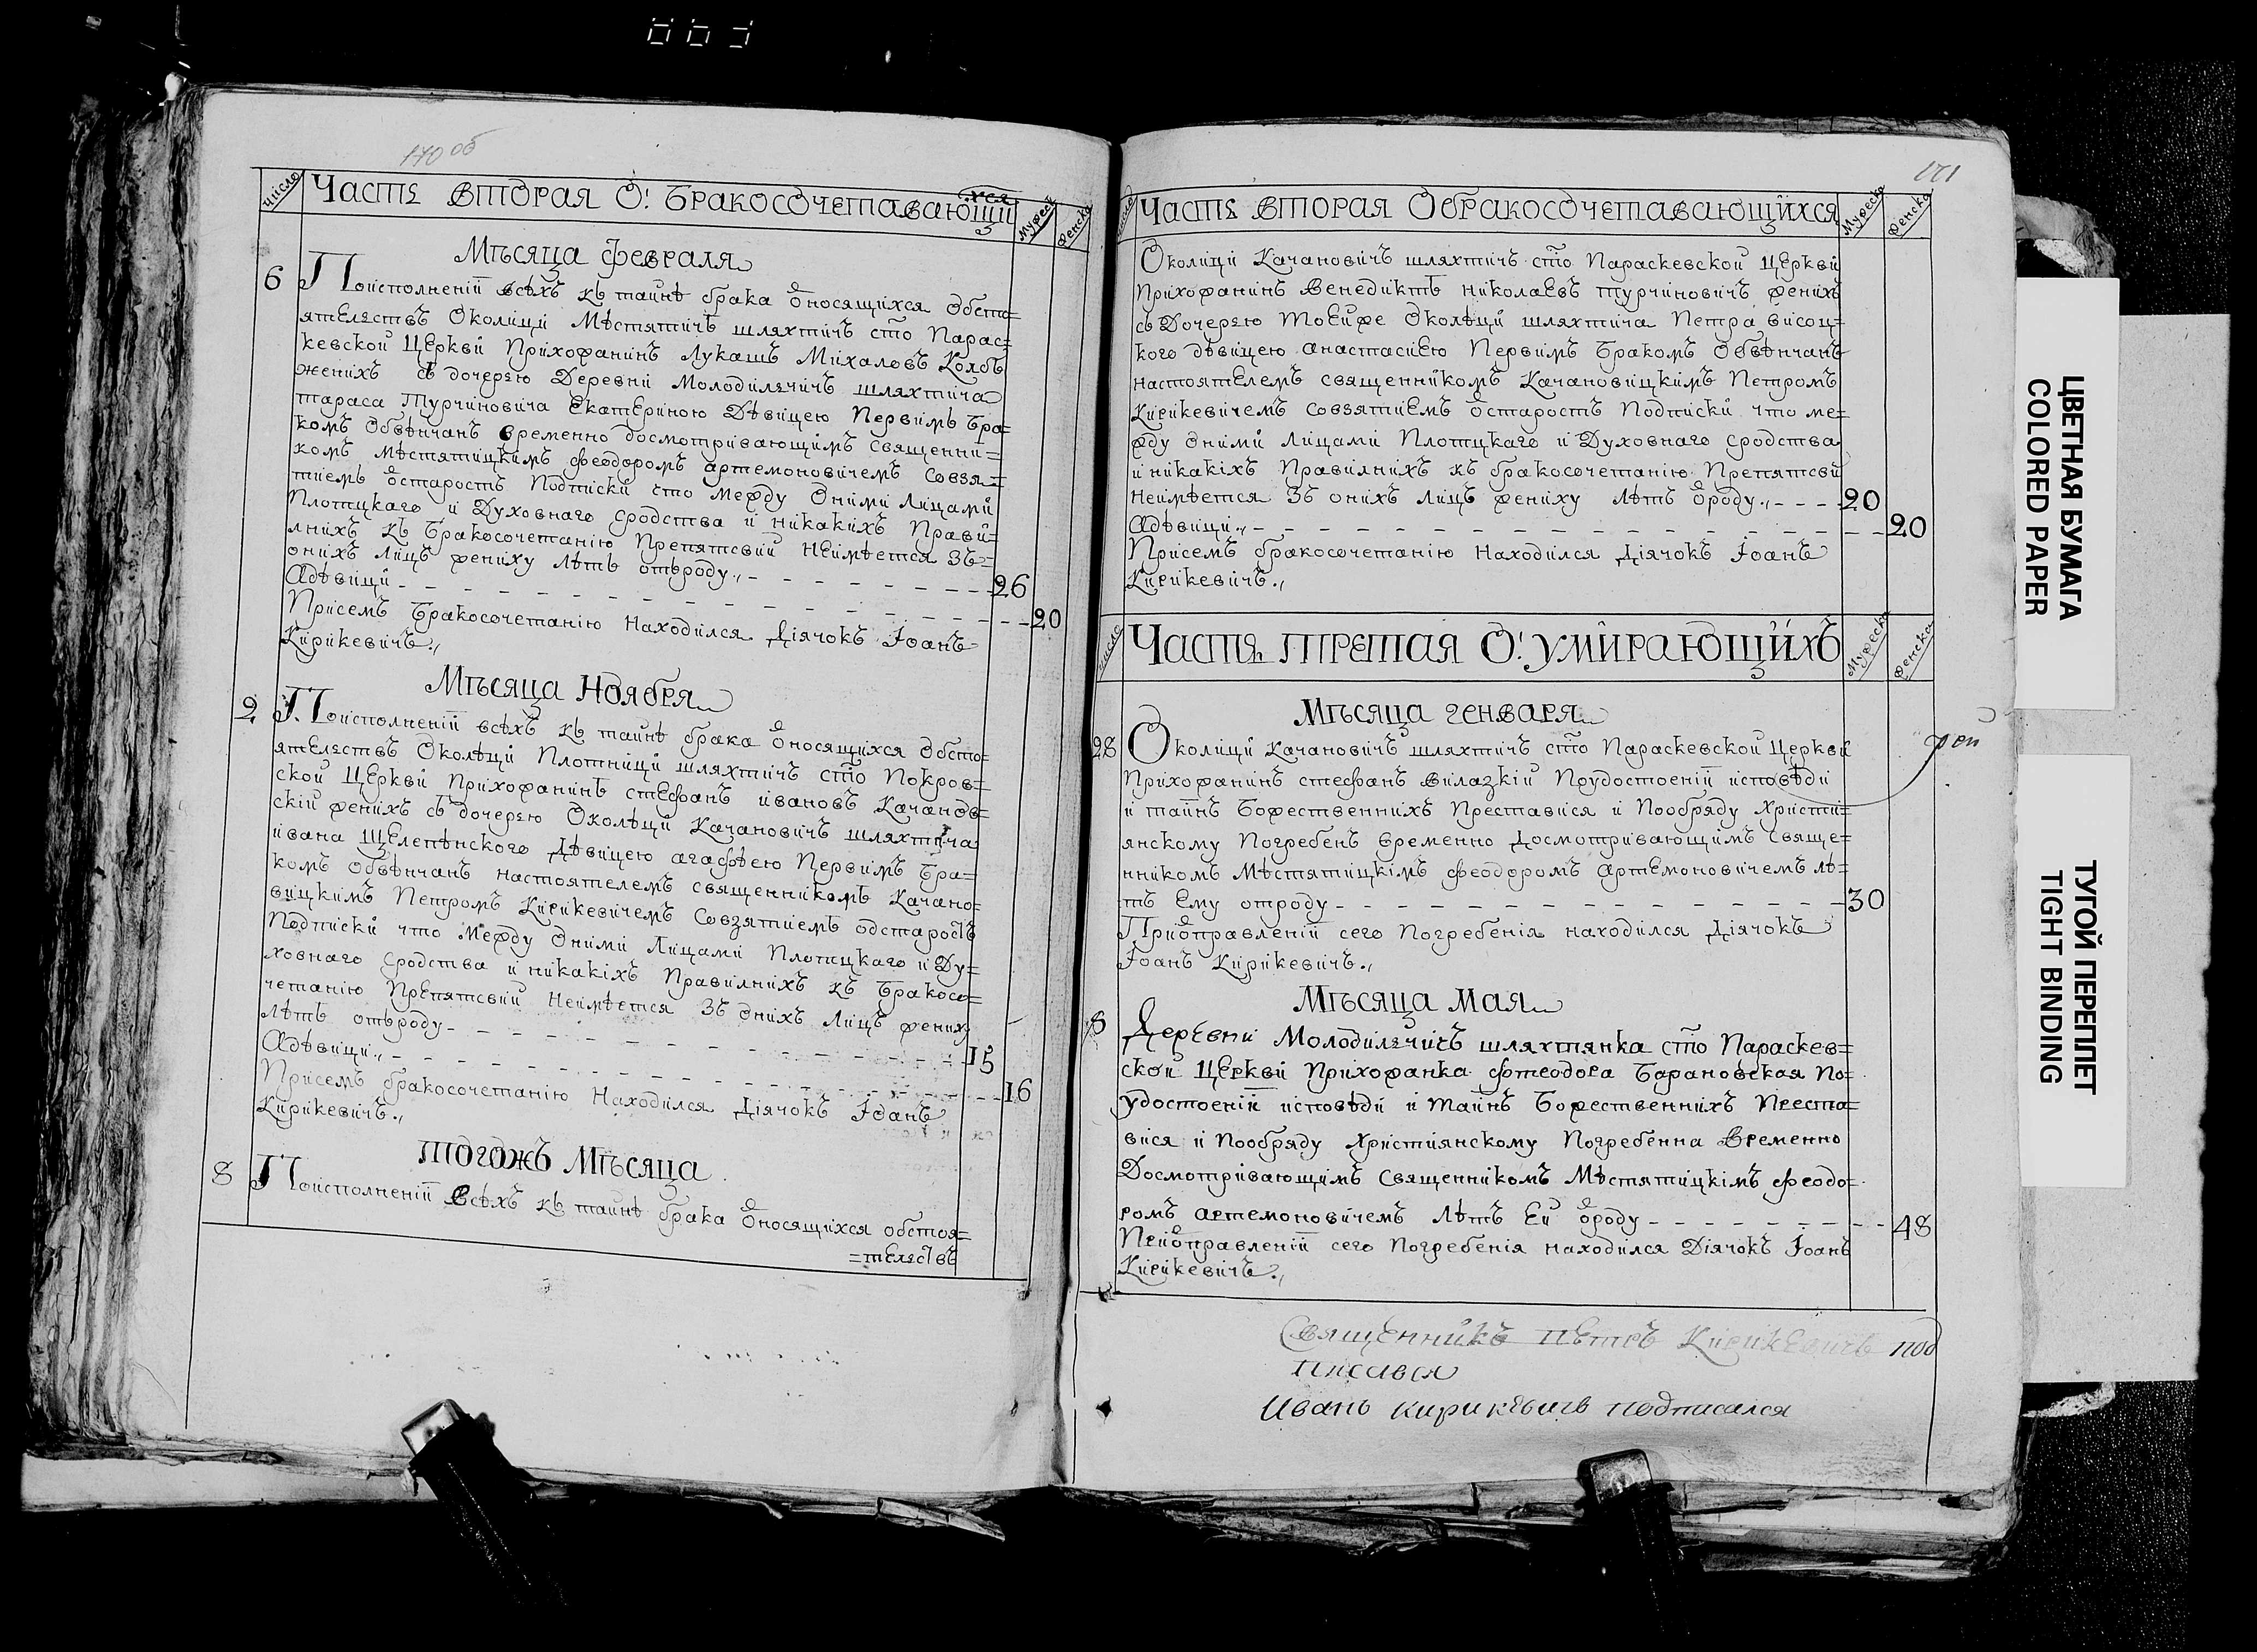 170 об
число
Часть вторая О! Бракосочетавающи
хся
Мужеск
Женска
Мѣсяца февраля
6
Поисполненіи всѣхъ къ тайнѣ брака относящихся обсто=
ятелствъ Околицы Мѣстятичъ шляхтичъ сто Парас=
кевской Церкви Прихожанинъ Лукашъ Михаловъ Колбъ
женихъ съ дочерею Деревни Молодилъчичъ шляхтича
тараса Турчиновича Екатериною Дѣвицею Первимъ бра=
комъ обвѣнчанъ временно досмотривающимъ священни=
комъ Мѣстятицкимъ феодоромъ артемоновичемъ совзя=
тиемъ отстаростъ Подписки что между Оними Лицами
Плотцкаго и Духовнаго сродства и никакихъ Прави=
лнихъ къ Бракосочетанію Препятсвий Неимѣется Зъ=
онихъ Лицъ жениху лѣтъ отъроду
26
Адѣвици
20
Присемъ Бракосочетанію Находился Діячокъ Іоанъ
Кирикевичъ
Мѣсяца Ноября
2
Поисполненіи всѣхъ къ тайнѣ брака относящихся обсто=
ятелствъ Околѣци Плотници шляхтичъ сто Покров=
ской Церкви Прихожанинъ стефанъ ивановъ Качанов=
скій женихъ съ дочерею Околѣци Качановичъ шляхтича
ивана Щелепѣнского Дѣвицею агафѣею Первимъ бра=
комъ обвѣнчанъ настоятелемъ священникомъ Качано=
вицкимъ Петромъ Кирикевичемъ Совзятиемъ одстаростъ
Подписки что Между Оними Лицами Плотцкаго и Ду=
ховнаго сродства и никакіхъ Правилнихъ къ Бракосо=
четанію Препятсвий Неимѣется Зъ онихъ Лицъ жених
лѣтъ отъроду
15
Адѣвици
16
Присемъ бракосочетанію Находился Діячокъ Іоанъ
Кирикевичъ
Тогожъ Мѣсяца
8
Поисполненіи Всѣхъ къ тайнѣ брака относящихся обстоя=
=телствъ
171
Часть вторая Обракосочетавающихся
Мужеска
Женска
Околици Качановичъ шляхтичъ сто Параскевской Церкви
Прихожанинъ Венедиктъ николаевъ турчиновичъ женихъ
съ Дочерею Тоейже Околѣци шляхтича Петра висоц=
кого дѣвицею анастасиею Первимъ Бракомъ Обвѣнчанъ
настоятелемъ священникомъ Качановицкимъ Петромъ
Кирикевичемъ совзятиемъ отстаростъ Подписки что ме=
жду Оними Лицами Плотцкаго и Духовнаго сродства
и никакіхъ Правилнихъ къ бракосочетанію Препятсви
Неимѣется Зъ онихъ Лицъ жениху лѣтъ отроду
20
Адѣвици
20
Присемъ бракосочетанію Находился Діячокъ Іоанъ
Кирикевичъ
число
Часть третая О! умирающихъ
Мужеска
Женска
Мѣсяца генваря
28
Околици Качановичъ шляхтичъ сто Параскевской Церкви
Прихожанинъ стефанъ вилазкій Поудостоеніи исповѣди
и таинъ Божественнихъ Преставися и Пообряду Христи=
янскому Погребенъ временно Досмотривающимъ Свяще=
нникомъ Мѣстятицкімъ феодоромъ артемоновичемъ лѣ=
тъ Ему отроду
30
Приотправленіи сего Погребенія находился Діячокъ
Іоанъ Кирикевичъ
Мѣсяца Мая
8
Деревни Молодилъчичъ шляхтянка сто Параскев=
ской Церкви Прихожанка фтеодора Барановская По=
удостоеніи исповѣди и таинъ Божественнихъ Преста=
вися и Пообряду Християнскому Погребенна Временно
Досмотривающимъ Священикомъ Мѣстятицкімъ феодо=
ромъ артемоновичемъ лѣтъ Ей отроду
48
Приотправленіи сего Погребенія находился Діячокъ Іоанъ
Кирикевичъ
Священникъ Петръ Кирикевичъ под
писався
Иванъ Кирикѣвичъ подписался
ЦВЕТНАЯ БУМАГА
COLORED PAPER
ТУГОЙ ПЕРЕПЛЕТ
TIGHT BINDING